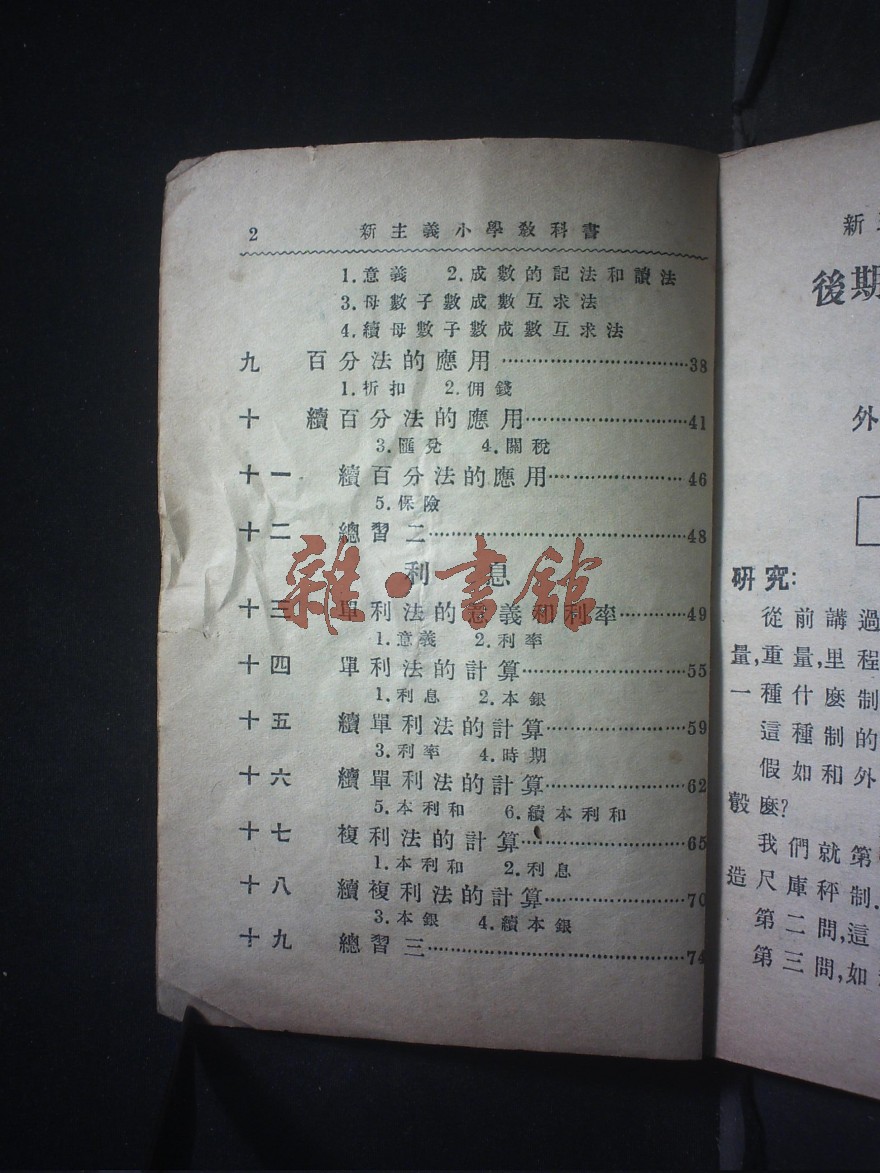 2 新主義小學教科書
1.意義 2.成數的記法和讀法
3.母數子數成數互求法
4.續母數子數成數互求法
九 百分法的應用……………………………38
1.折扣 2.佣錢
十 續百分法的應用…………………………41
3.匯兌 4.關稅
十一 續百分法的應用………………………46
5.保險
十二 總習二…………………………………48
利息
十三 單利法的意義和利率…………………49
1.意義 2.利率
十四 單利法的計算…………………………55
1.利息 2.本銀
十五 續單利法的計算………………………59
3.利率 4.時期
十六 續單利法的計算………………………62
5.本利和 6.續本利和
十七 複利法的計算…………………………65
1.本利和 2.利息
十八 續複利法的計算………………………70
3.本銀 4.續本銀
十九 總習三…………………………………74
雜·書館
新
後期
外
研究:
從前講過
量,重量,里程
一種什麼制
這種制的
假如和外
彀麼?
我們就第
造尺庫秤制.
第二問,這
第三問,如